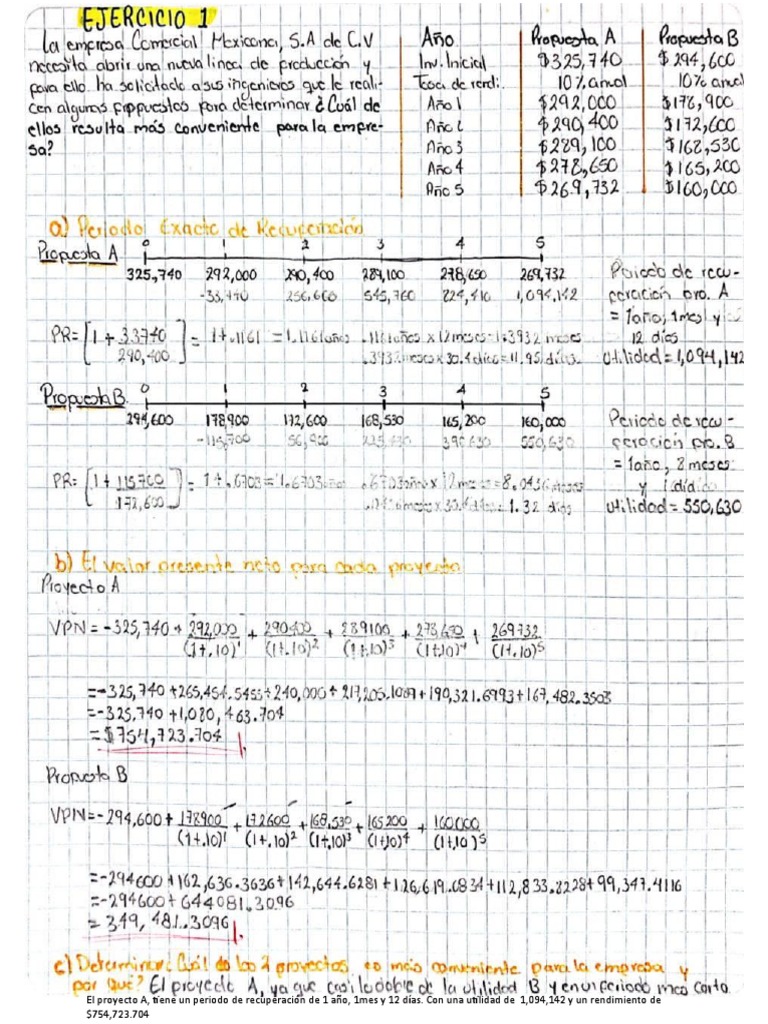 EJERCICIO 1
La empresa Comercial Mexicana, S.A de C.V
necesita abrir una nueva linea de producción y
para ello ha solicitado a sus ingenieros que le reali-
cen algunas propuestas para determinar ¿Cuál de
ellos resulta más conveniente para la empre-
sa?
Año Propuesta A Propuesta B
Inv. Inicial $325,740 $294,600
Tasa de rendi. 10% anual 10% anual
Año 1 $292,000 $178,900
Año 2 $290,400 $172,600
Año 3 $289,100 $168,530
Año 4 $278,650 $165,200
Año 5 $269,732 $160,000
a) Periodo Exacto de Recuperación
Propuesta A
0 1 2 3 4 5
325,740 292,000 290,400 289,100 278,650 269,732
-33,740 256,660 545,760 824,410 1,094,142
Periodo de recu-
peración pro. A
= 1año, 1mes y
12 días
Utilidad = 1,094,142
PR= [1 + 33740 / 290,400] = 1+.1161 = 1.1161años .1161años x 12meses = 1.3932 meses
.3932meses x 30.4 dias = 11.95 días
Propuesta B
0 1 2 3 4 5
294,600 178,900 172,600 168,530 165,200 160,000
-115,700 56,900 225,430 390,630 550,630
Periodo de recu-
peración pro. B
= 1año, 8 meses
y 1 día
Utilidad = 550,630
PR= [1 + 115700 / 172,600] = 1+.6703 = 1.6703años .6703años x 12meses = 8.0436 meses
.0436meses x 30.4 dias = 1.32 dias
b) El valor presente neto para cada proyecto
Proyecto A
VPN = -325,740 + 292,000/(1+.10)¹ + 290400/(1+.10)² + 289100/(1+.10)³ + 278650/(1+.10)⁴ + 269732/(1+.10)⁵
=-325,740 +265,454.5455+240,000+217,205.1089+190,321.6993+167,482.3503
=-325,740 +1,080,463.704
=$754,723.704
Propuesta B
VPN=-294,600 + 178900/(1+.10)¹ + 172600/(1+.10)² + 168,530/(1+.10)³ + 165200/(1+.10)⁴ + 160000/(1+.10)⁵
=-294600+162,636.3636+142,644.6281+126,619.0834+112,833.8228+99,347.4116
=-294600+644081.3096
= 349,481.3096
c) Determinar ¿Cuál de los 2 proyectos es más conveniente para la empresa y
por qué? El proyecto A, ya que casi lo doble de la utilidad B y en un periodo mas corto.
El proyecto A, tiene un periodo de recuperación de 1 año, 1mes y 12 días. Con una utilidad de 1,094,142 y un rendimiento de
$754,723.704